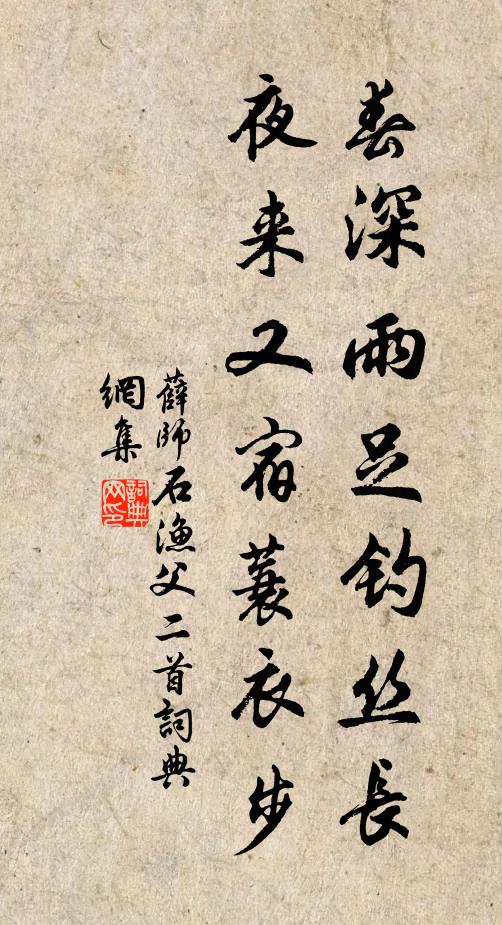 春深雨足钓丝長
夜来又宿蓑衣步
薛師石漁父二首詞典
網集
詞典
网印